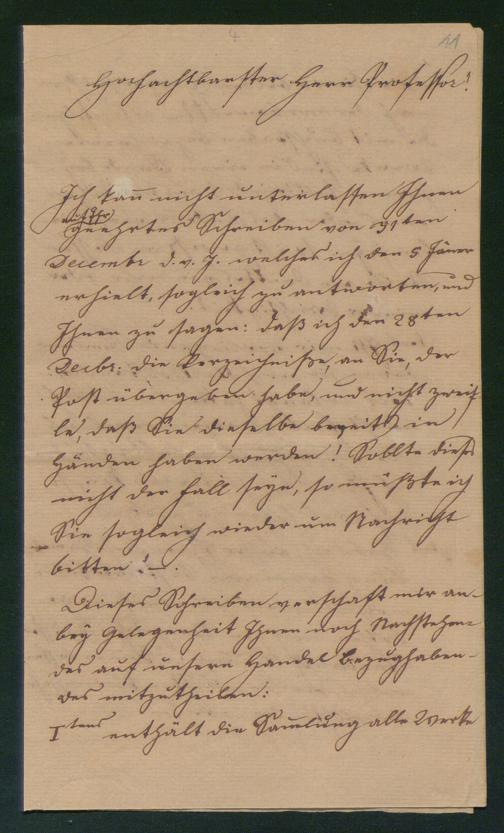 4
11
Hochachtbarster Herr Professor!
Ich kann nicht unterlassen Ihnen
auf Ihr
geehrtes Schreiben von 31ten
Decembr d. v. J. welches ich den 5 Jäner
erhielt, sogleich zu antworten, und
Ihnen zu sagen: daß ich den 28ten
Decbr: die Verzeichniße, an Sie, der
Post übergeben habe, und nicht zweif
le, daß Sie dieselbe bereits in
Händen haben werden! Sollte dieß
nicht der Fall seyn, so müßte ich
Sie sogleich wieder um Nachricht
bitten! –.
Dieses Schreiben verschaft mir an-
bey Gelegenheit Ihnen noch Nachstehen-
des auf unsern Handel bezughaben-
des mitzutheilen:
Itens enthält die Samlung alle Werke